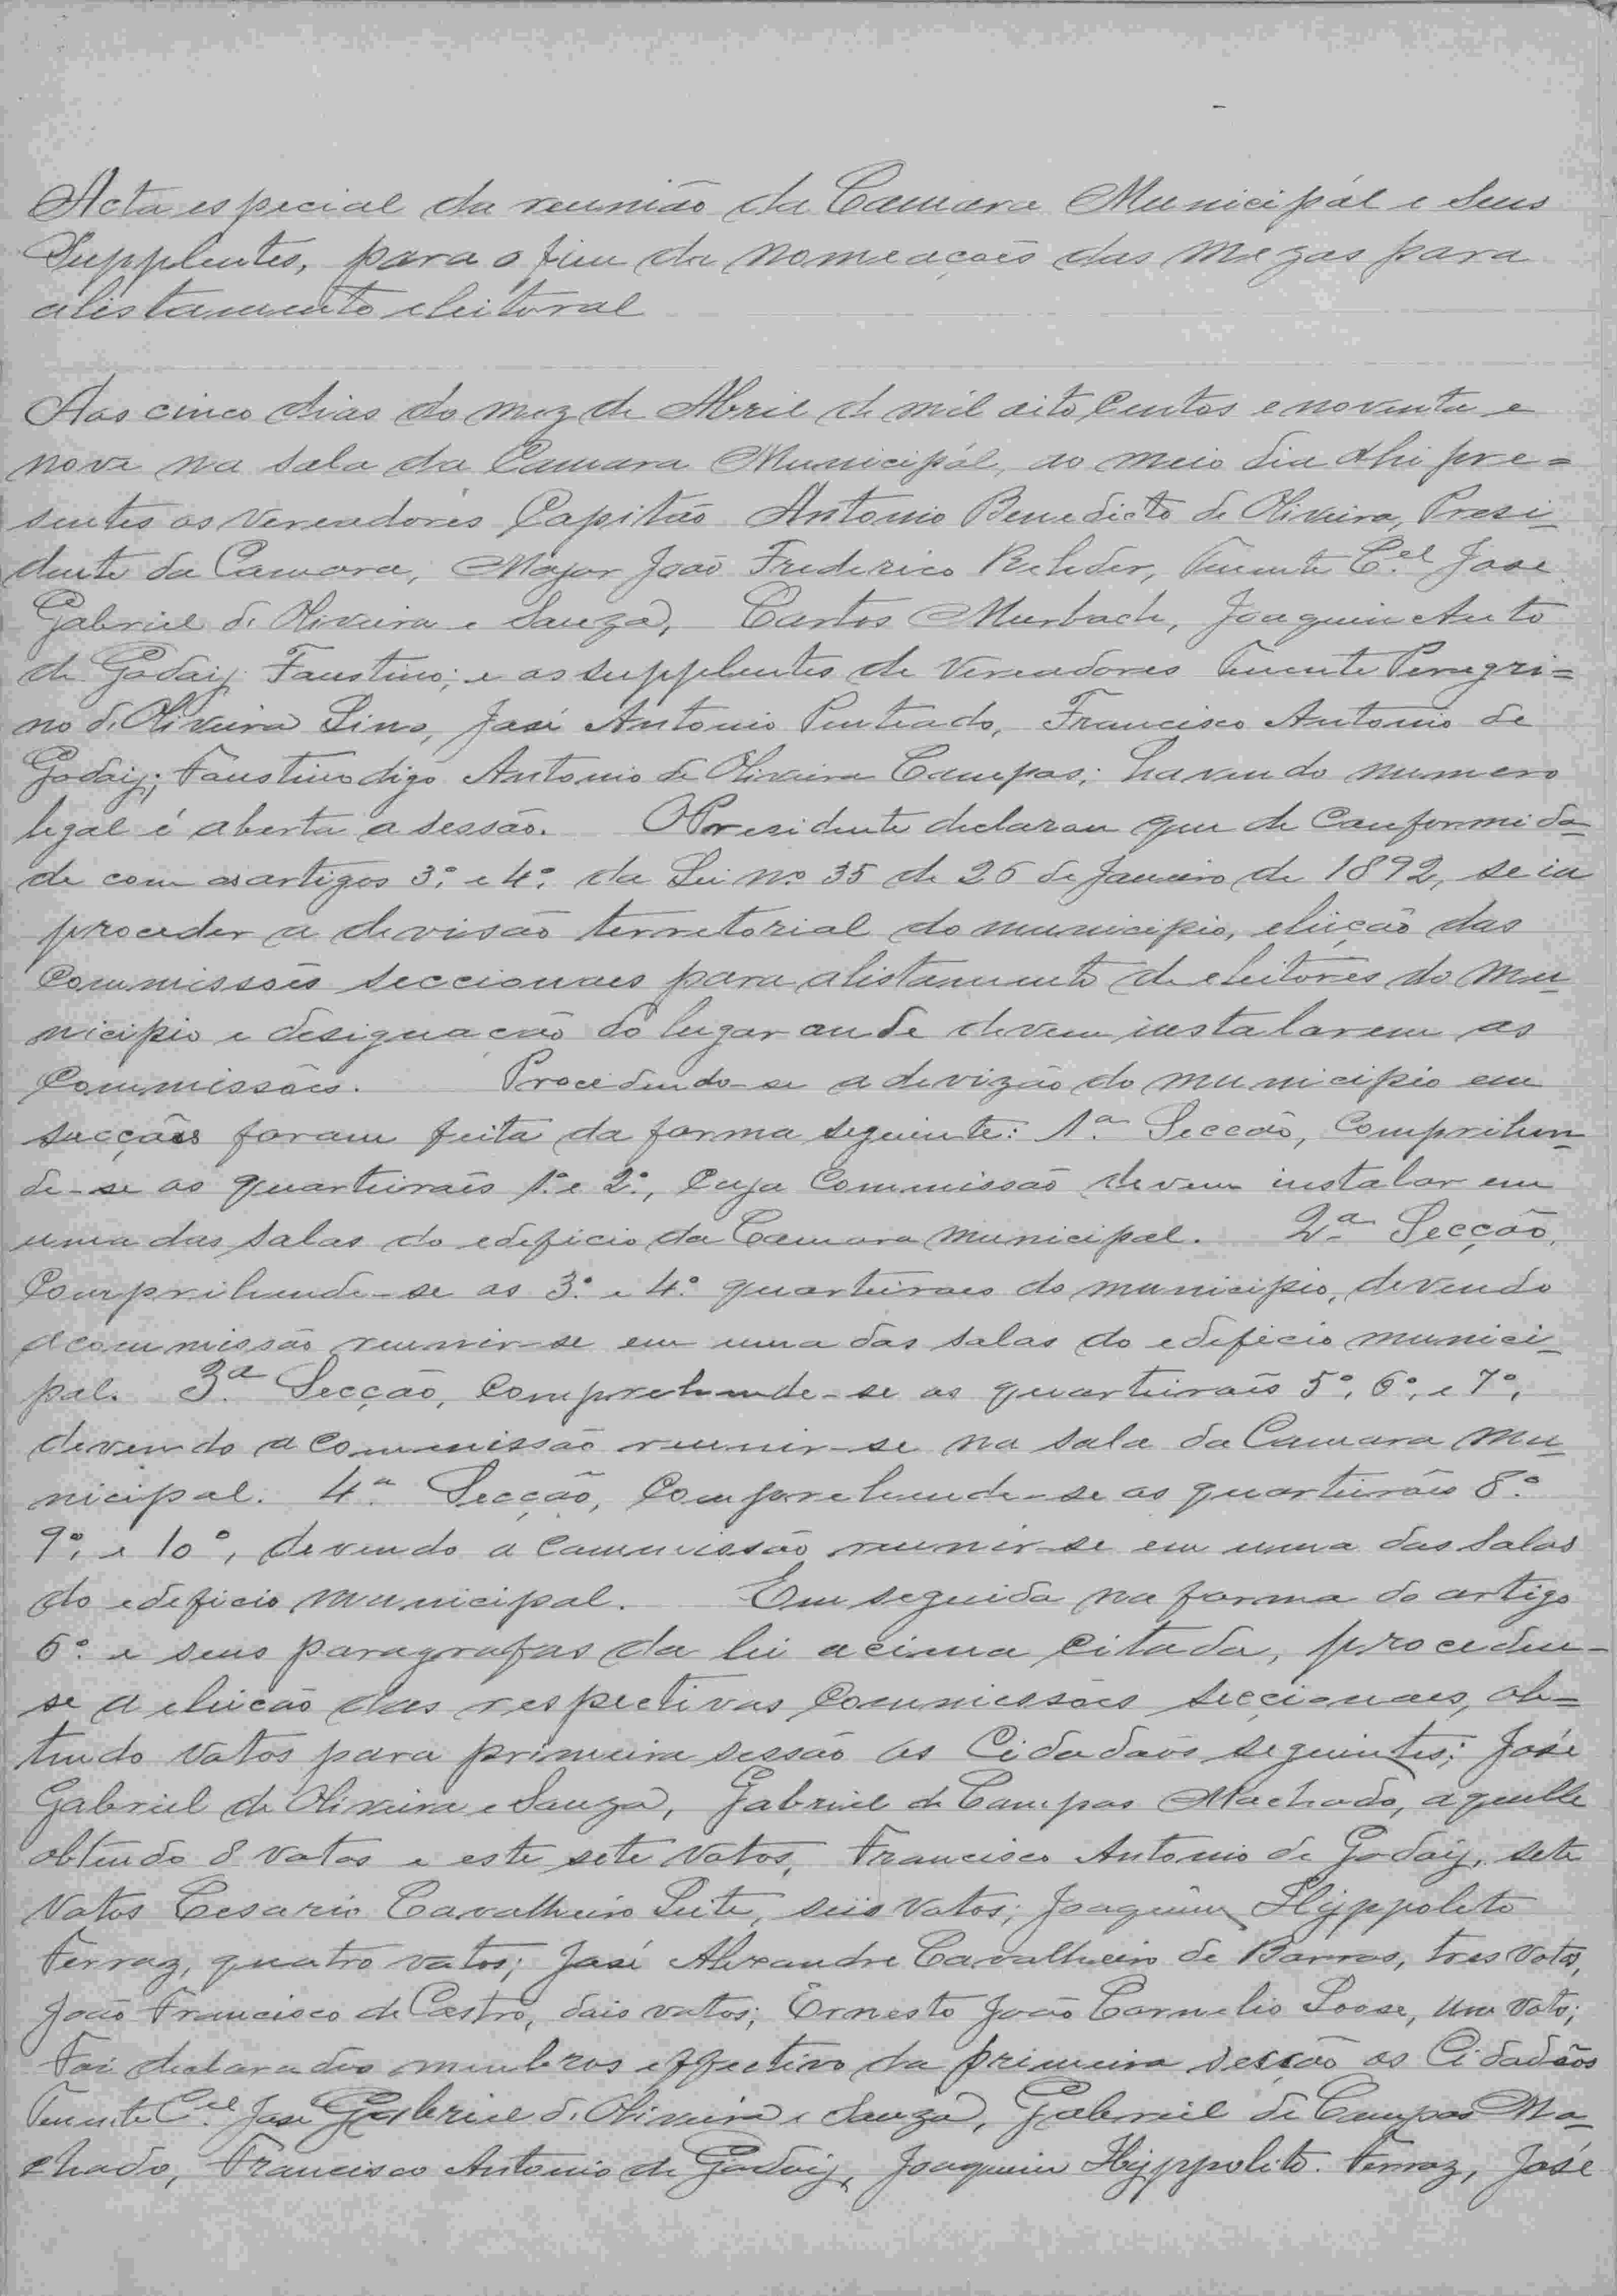 Acta especial da reunião da Camara Municipál e seus
Supplentes, para o fim da nomeaçoẽs das mezas para
alistamento eleitoral
Aos cinco dias do mez de Abril de mil oito centos e noventa e
nove na sala da Camara Municipál, ao meio dia ahi pre=
sentes os vereadores Capitão Antonio Benedicto de Oliveira, Presi-
dente da Camara, Major João Frederico Rehder, Tenente C.el José
Gabriel de Oliveira e Souza, Carlos Murbach, Joaquim Anto
de Godoiy Faustino; e os supplentes de Vereadores Tenente Peregri=
no de Oliveira Lino, José Antonio Penteado, Francisco Antonio de
Godoiy; Faustino digo Antonio de Oliveira Campos; havendo numero
legal é aberta a sessão. O Presidente declarou que de conformida-
de com os artigos 3.º e 4.º da Lei n.º 35 de 26 de Janeiro de 1892, se ia
proceder a devisão terretorial do municipio, eleição das
Commissões seccionaes para alistamento de eleitores do mu-
nicipio e designação do lugar onde devem instalarem as
Commissões. Procedendo-se a devizão do municipio em
secções foram feita da forma seguinte: 1.ª Secção, Comprihen-
de-se os quarteirões 1.º e 2.º, Cuja Commissão devem instalar em
uma das salas do edeficio da Camara municipal. 2.ª Secção,
Comprihende-se os 3.º e 4.º quarteirões do municipio, devendo
a commissão reunir-se em uma das salas do edeficio munici-
pal. 3.ª Secção, Comprehende-se os quarteirões 5.º, 6.º, e 7.º,
devendo a Commissão reunir-se na sala da Camara mu-
nicipal. 4.ª Secção, Comprehende-se os quarteirões 8.º
9.º, e 10.º, devendo a Commissão reunir-se em uma das salas
do edeficio municipal. Em seguida na forma do artigo
6.º e seus paragrafos da lei acima citada, procedeu-
se a eleicão das respectivas Commissões secçionaes, ob=
tendo votos para primeira sessão os Cidadãos seguintes; José
Gabriel de Oliveira e Souza, Gabriel de Campos Machado, aquelle
obtendo 8 votos e este sete votos, Francisco Antonio de Godoiy, sete
votos Cesario Cavalheiro Leite, seis votos; Joaquim Hyppolito
Ferraz, quatro votos; José Alexandre Cavalheiro de Barros, tres votos,
João Francisco de Castro, dois votos; Ernesto João Cornelio Loose, um voto;
Foi declarados membros effectivo da primeira sessão os Cidadãos
Tenente C.el José Gabriel de Oliveira e Souza, Gabriel de Campos Ma-
chado, Francisco Antonio de Godoiy, Joaquim Hyppolito Ferraz, José